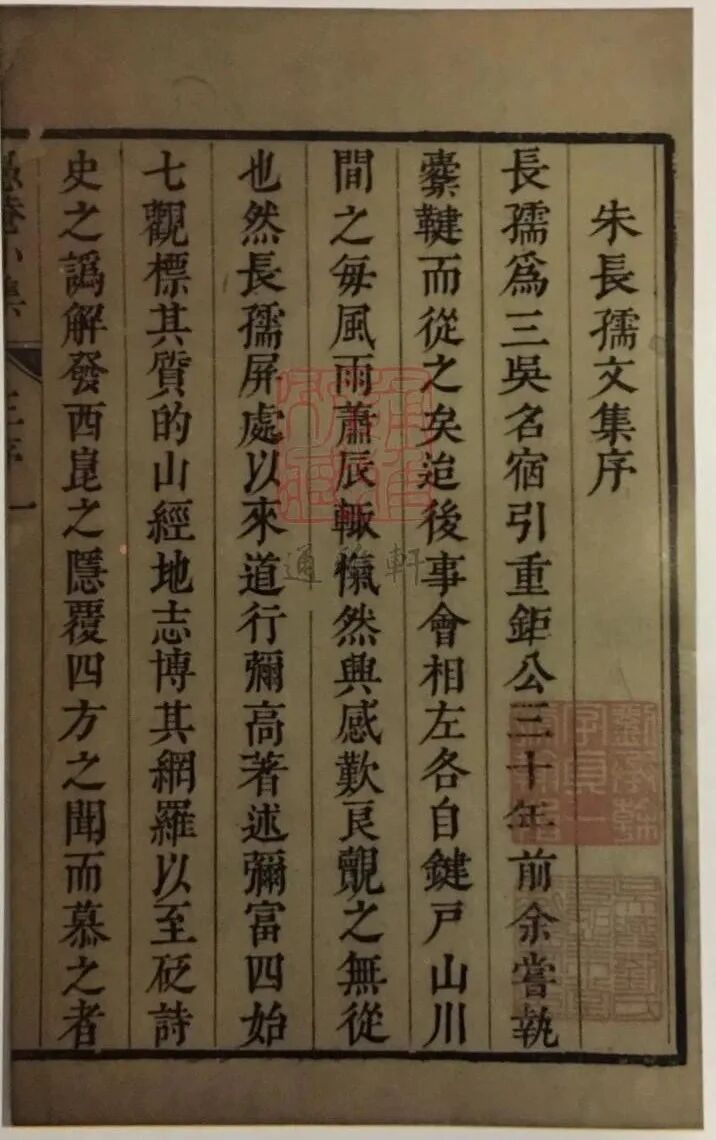 朱長孺文集序
長孺爲三吳名宿引重鉅公三十年前余嘗執
櫜鞬而從之矣迨後事會相左各自鍵戸山川
間之毎風雨蕭辰輙愾然興感歎良覿之無從
也然長孺屏處以來道行彌高著述彌富四始
七觀標其質的山經地志博其網羅以至砭詩
史之譌解發西崑之隱覆四方之聞而慕之者
愚菴小集 王序 一
通雅軒